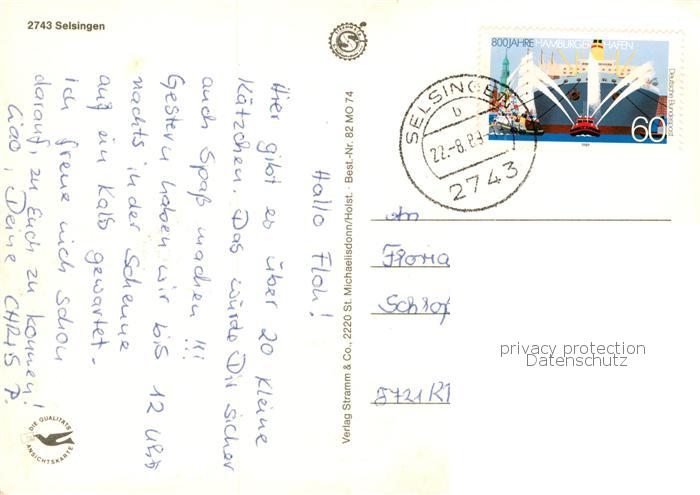 2743 Selsingen
Hallo Floh!
Hier gibt es über 20 kleine
Kätzchen. Das würde Dir sicher
auch Spaß machen !!!
Gestern haben wir bis 12 Uhr
nachts in der Scheune
auf ein Kalb gewartet.
ich freue mich schon
darauf, zu Euch zu kommen!
Ciao, Deine CHRIS P.
DIE QUALITÄTS
ANSICHTSKARTE
Verlag Stramm & Co., 2220 St. Michaelisdonn/Holst. · Best.-Nr. 82 MO 74
800 JAHRE HAMBURGER HAFEN
Deutsche Bundespost
60
1989
SELSINGEN
b
22.-8.89
2743
An
Floria
Schröf
privacy protection
Datenschutz